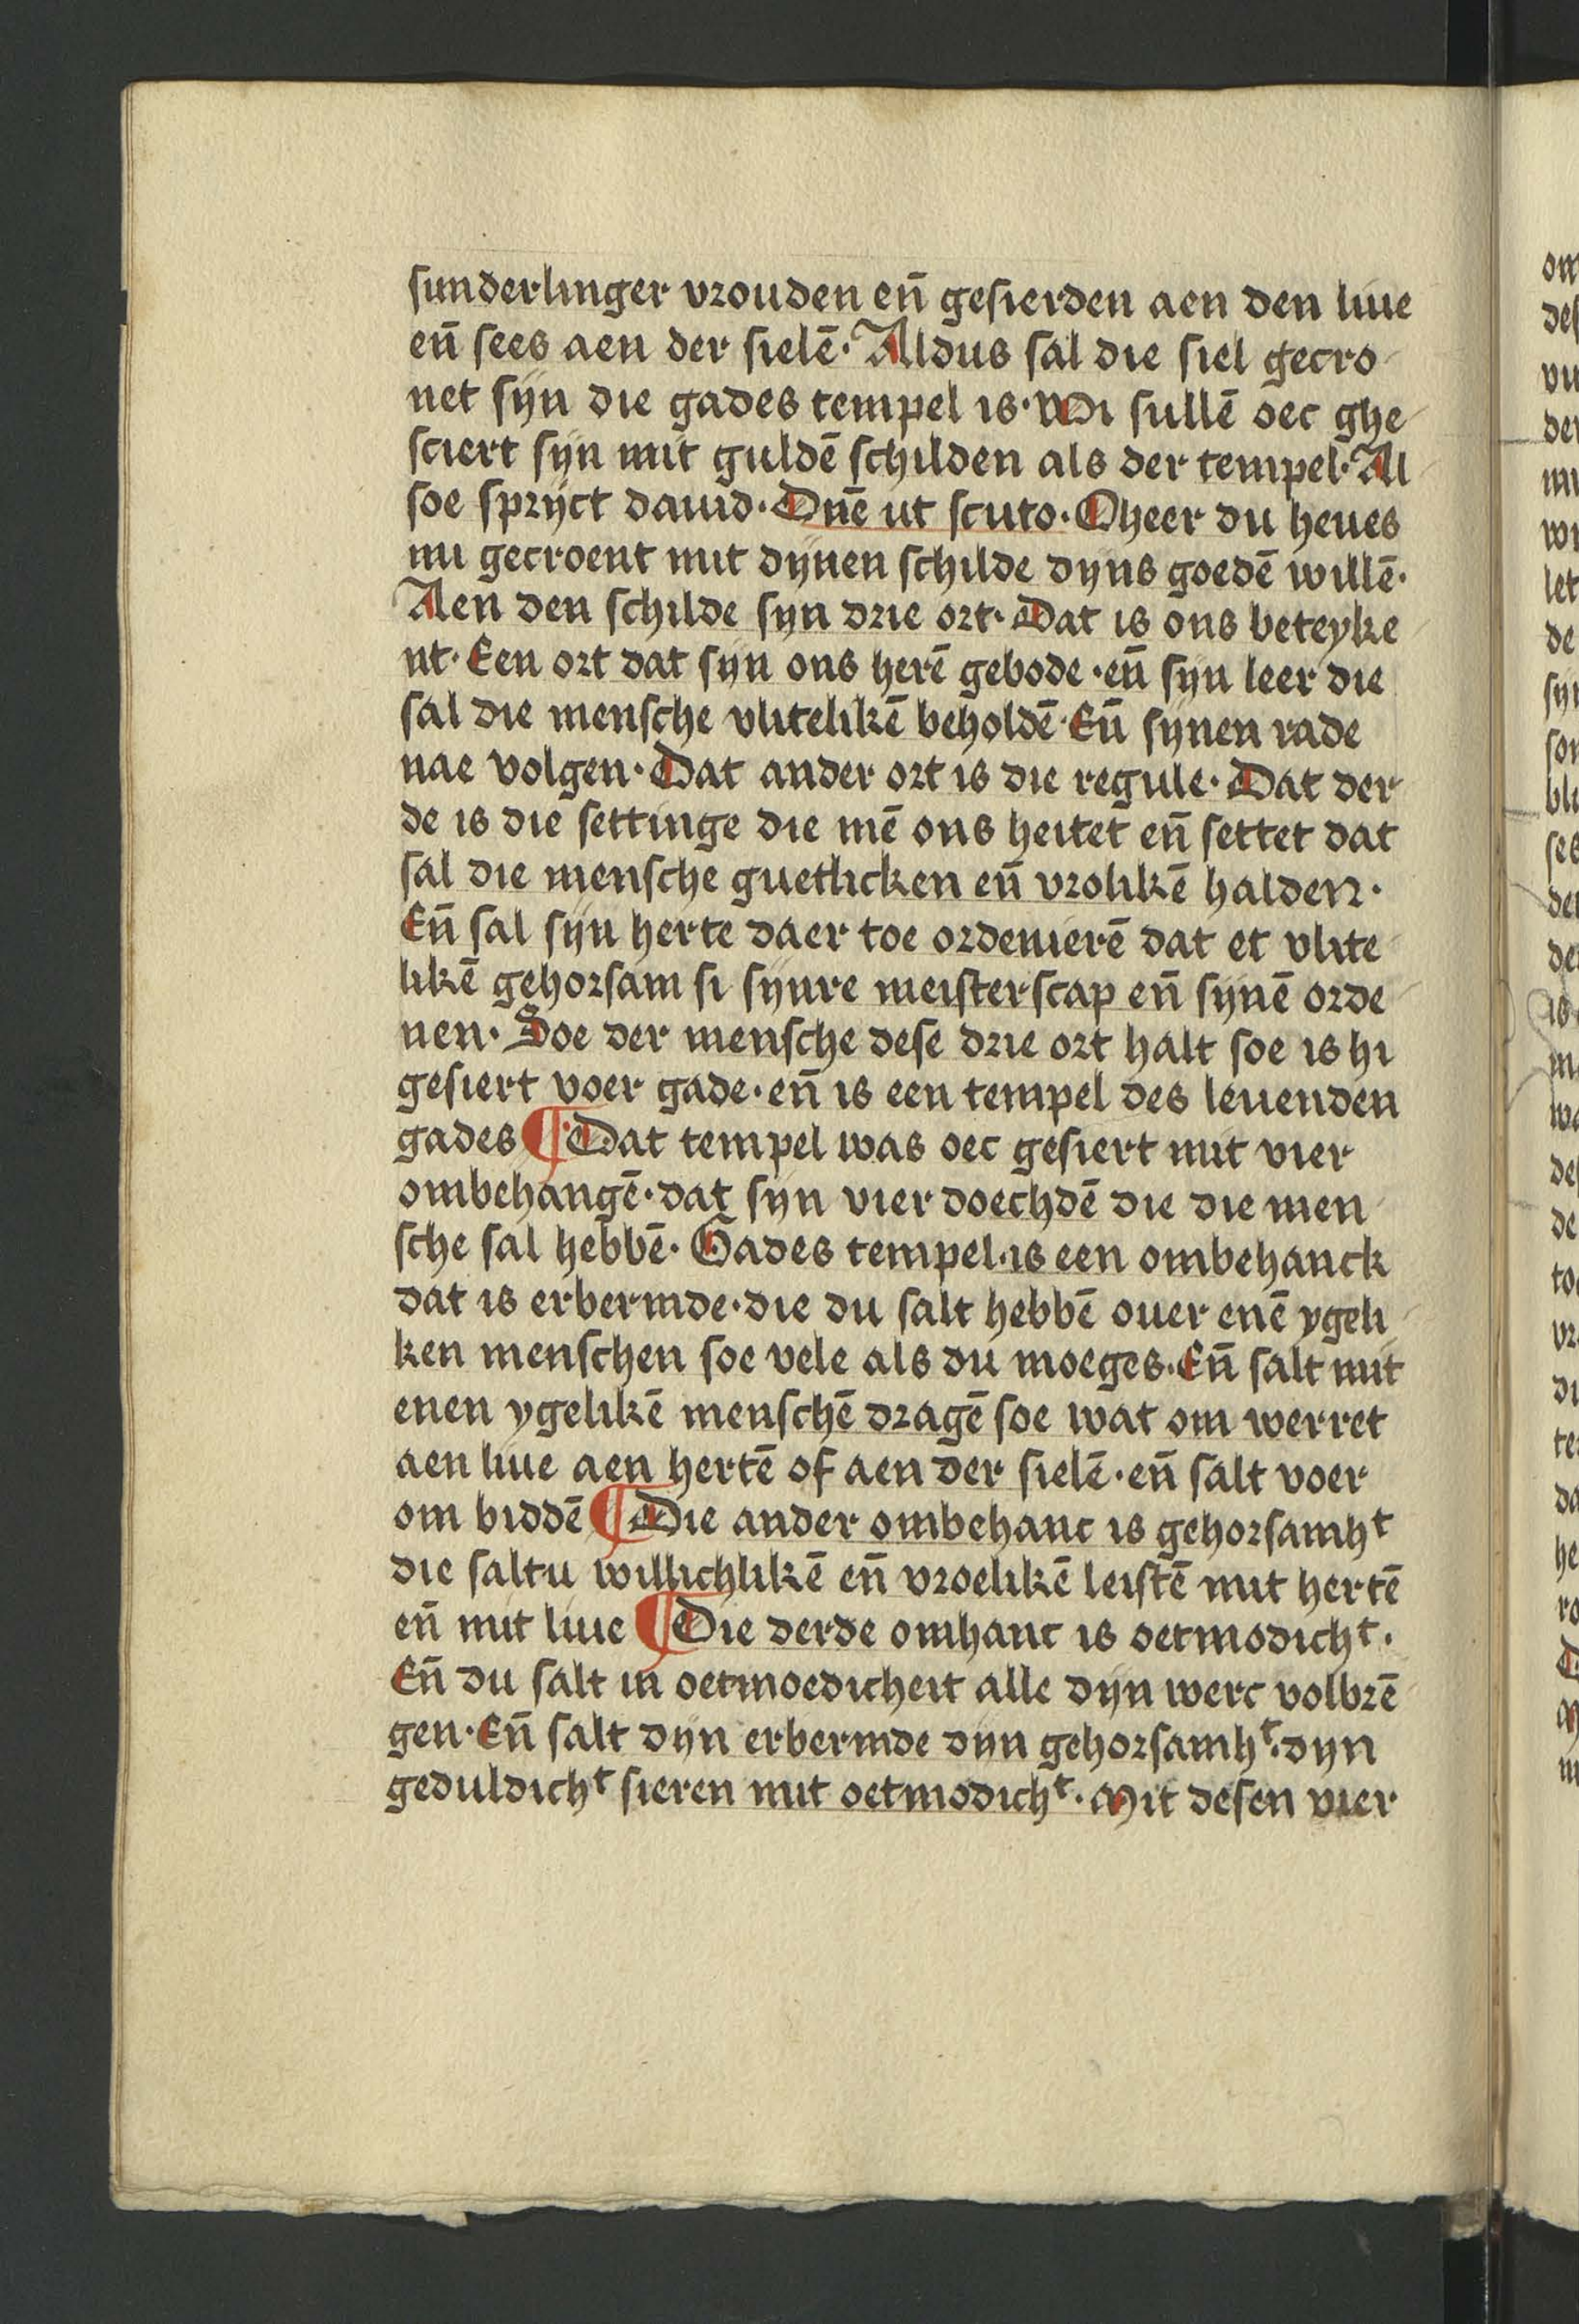 sunderlinger vrouden en̄ gesierden aen den liue
en̄ sees aen der sielē· Aldus sal die siel gecro
net sijn die gades tempel is· Wi sullē oec ghe
sciert sijn mit guldē schilden als der tempel· Al
soe sprijct dauid· Dn̄e ut scuto· O heer du heues
nu gecroent mit dijnen schilde dyns goedē willē·
Aen den schilde syn drie ort· Dat is ons beteyke
nt· Een ort dat sijn ons herē gebode· en̄ sijn leer die
sal die mensche vlitelikē beholdē· En̄ sijnen rade
nae volgen· Dat ander ort is die regule· Dat der
de is die settinge die mē ons heitet en̄ settet dat
sal die mensche guetlicken en̄ vrolikē halden·
En̄ sal sijn herte daer toe ordenierē dat et vlite
likē gehorsam si sijnre meisterscap en̄ sijnē orde
nen· Soe der mensche dese drie ort halt soe is hi
gesiert voer gade· en̄ is een tempel des leuenden
gades ¶ Dat tempel was oec gesiert mit vier
ombehangē· dat sijn vier doechdē die die men
sche sal hebbē· Gades tempel· is een ombehanck
dat is erbermde· die du salt hebbē ouer enē ygeli
ken menschen soe vele als du moeges· En̄ salt mit
enen ygelikē menschē dragē soe wat om werret
aen liue aen hertē of aen der sielē· en̄ salt voer
om biddē ¶ Die ander ombehanc is gehorsamhᵗ
die saltu willichlikē en̄ vroelikē leistē mit hertē
en̄ mit liue ¶ Die derde omhanc is oetmodichᵗ·
En̄ du salt in oetmoedicheit alle dijn werc volbrē
gen· En̄ salt dyn erbermde dijn gehorsamhᵗ· dyn
geduldichᵗ sieren mit oetmodichᵗ· Mit desen vier